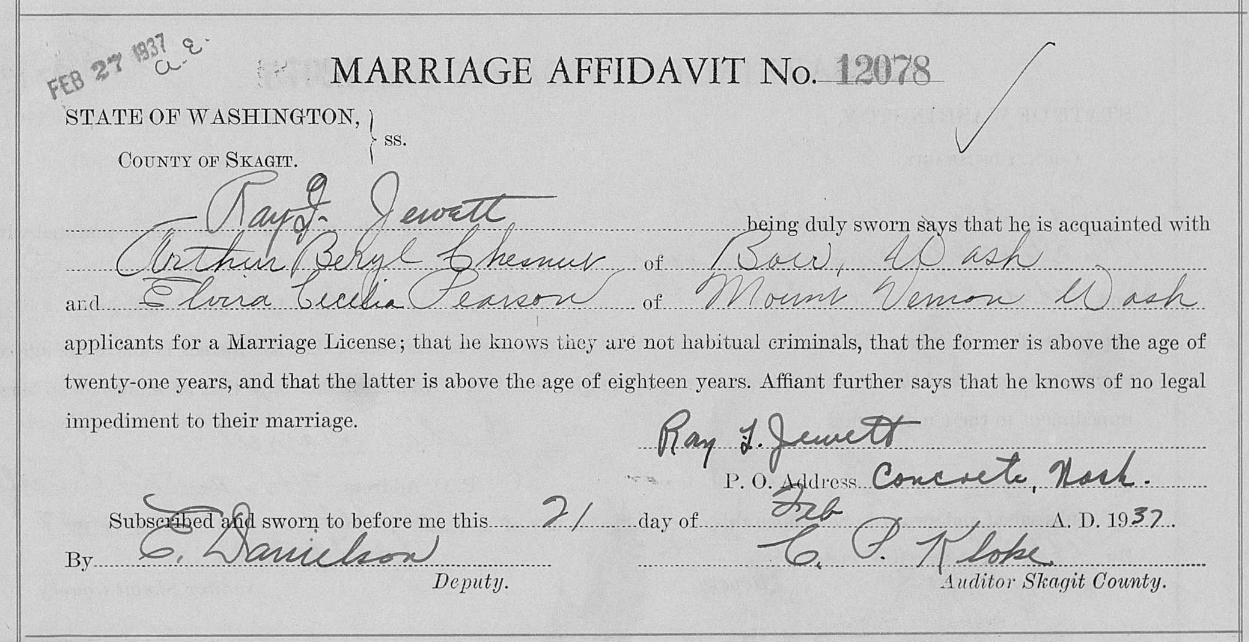 FEB 27 1937
a.E.
MARRIAGE AFFIDAVIT No. 12078
STATE OF WASHINGTON,
ss.
COUNTY OF SKAGIT.
Ray J. Jewett being duly sworn says that he is acquainted with
Arthur Beryl Chesnut of Bow, Wash
and Elvira Cecilia Pearson of Mount Vernon Wash
applicants for a Marriage License; that he knows they are not habitual criminals, that the former is above the age of
twenty-one years, and that the latter is above the age of eighteen years. Affiant further says that he knows of no legal
impediment to their marriage.
Ray J. Jewett
P. O. Address Concrete, Wash.
Subscribed and sworn to before me this 21 day of Feb A. D. 1937.
By E. Danielson C. P. Kloke
Deputy. Auditor Skagit County.